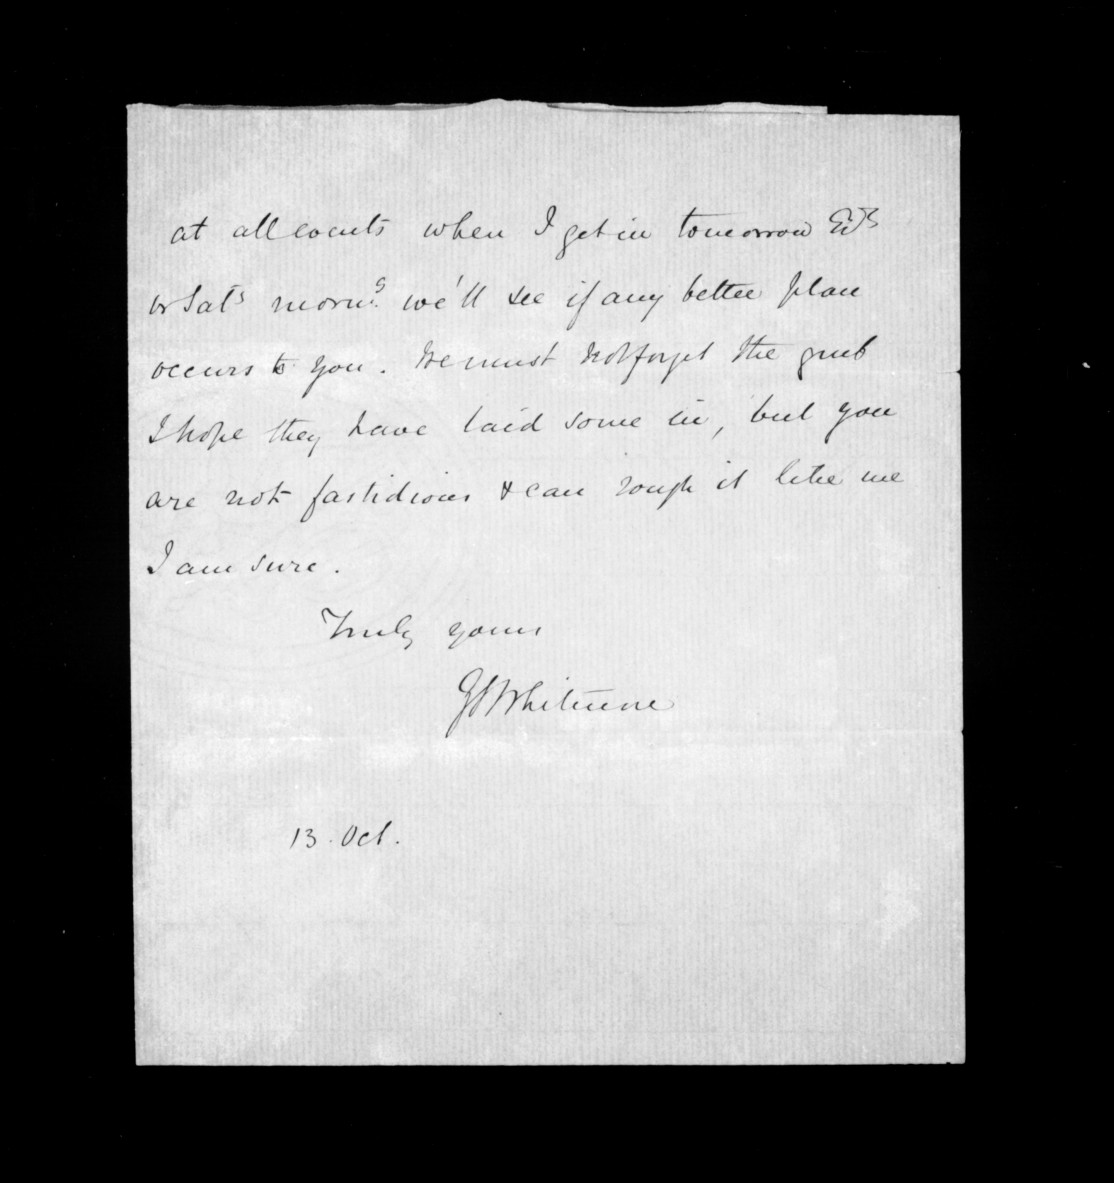 at all events when I get in tomorrow Ev^g
or Sat^y morn^g. we'll see if any better plan
occurs to you. We must not forget the grub
I hope they have laid some in, but you
are not fastidious & can rough it like me
I am sure.
Truly yours
GSWhitmore
13. Oct.